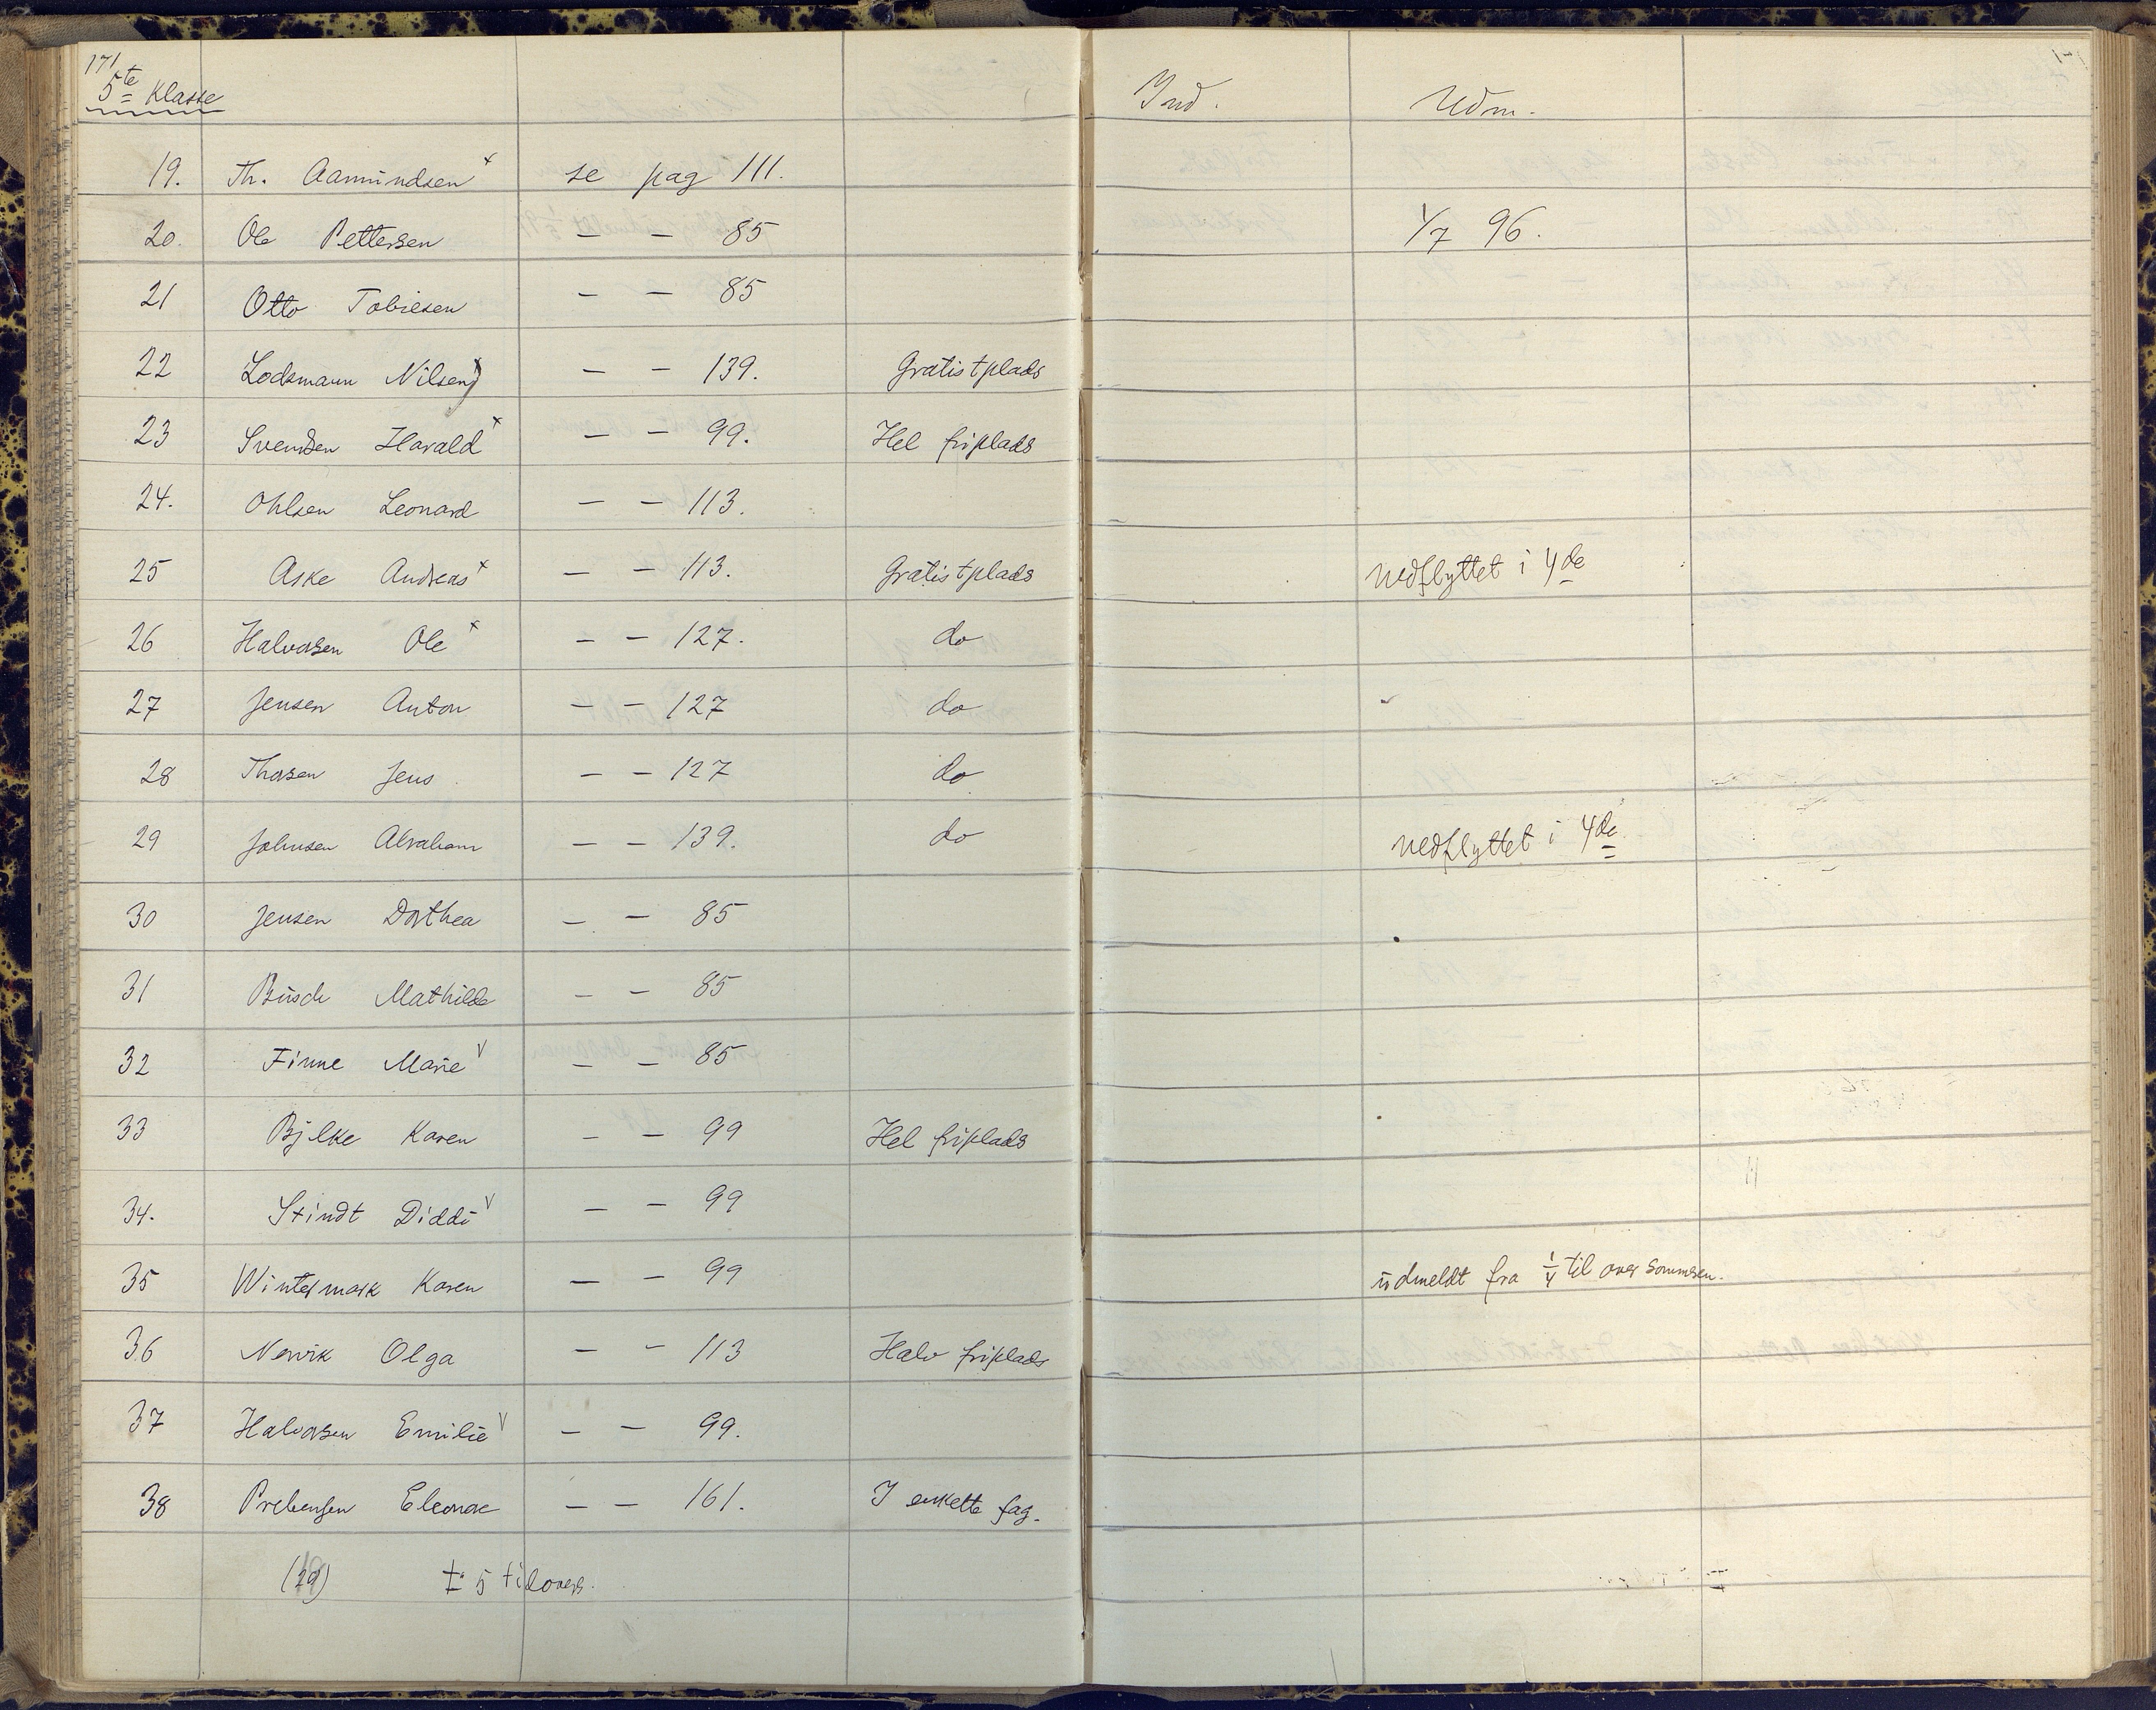 171
5te Klasse Ind. Udm.
19. Th. Aamundsen x se pag 111.
20. Ole Pettersen — — 85 1/7 96.
21 Otto Tobiesen — — 85
22 Lodsmann Nilsen — — 139. Gratistplads
23 Svendsen Harald x — — 99. Hel friplads
24. Ohlsen Leonard — — 113.
25 Aske Andreas x — — 113. Gratistplads nedflyttet i 4de
26 Halvorsen Ole x — — 127. do
27 Jensen Anton — — 127 do
28 Thorsen Jens — — 127 do
29 Johnsen Abraham — — 139. do nedflyttet i 4de
30 Jensen Dorthea — — 85
31 Büsch Mathilde — — 85
32 Finne Marie v — — 85
33 Bjelke Karen — — 99 Hel friplads
34. Stindt Diddi v — — 99
35 Wintermark Karen — — 99 udmeldt fra 1/4 til over sommeren.
36 Nervik Olga — — 113 Halv friplads
37 Halvorsen Emilie v — — 99.
38 Prebensen Eleonore — — 161. I enkelte fag.
5 tilovers.